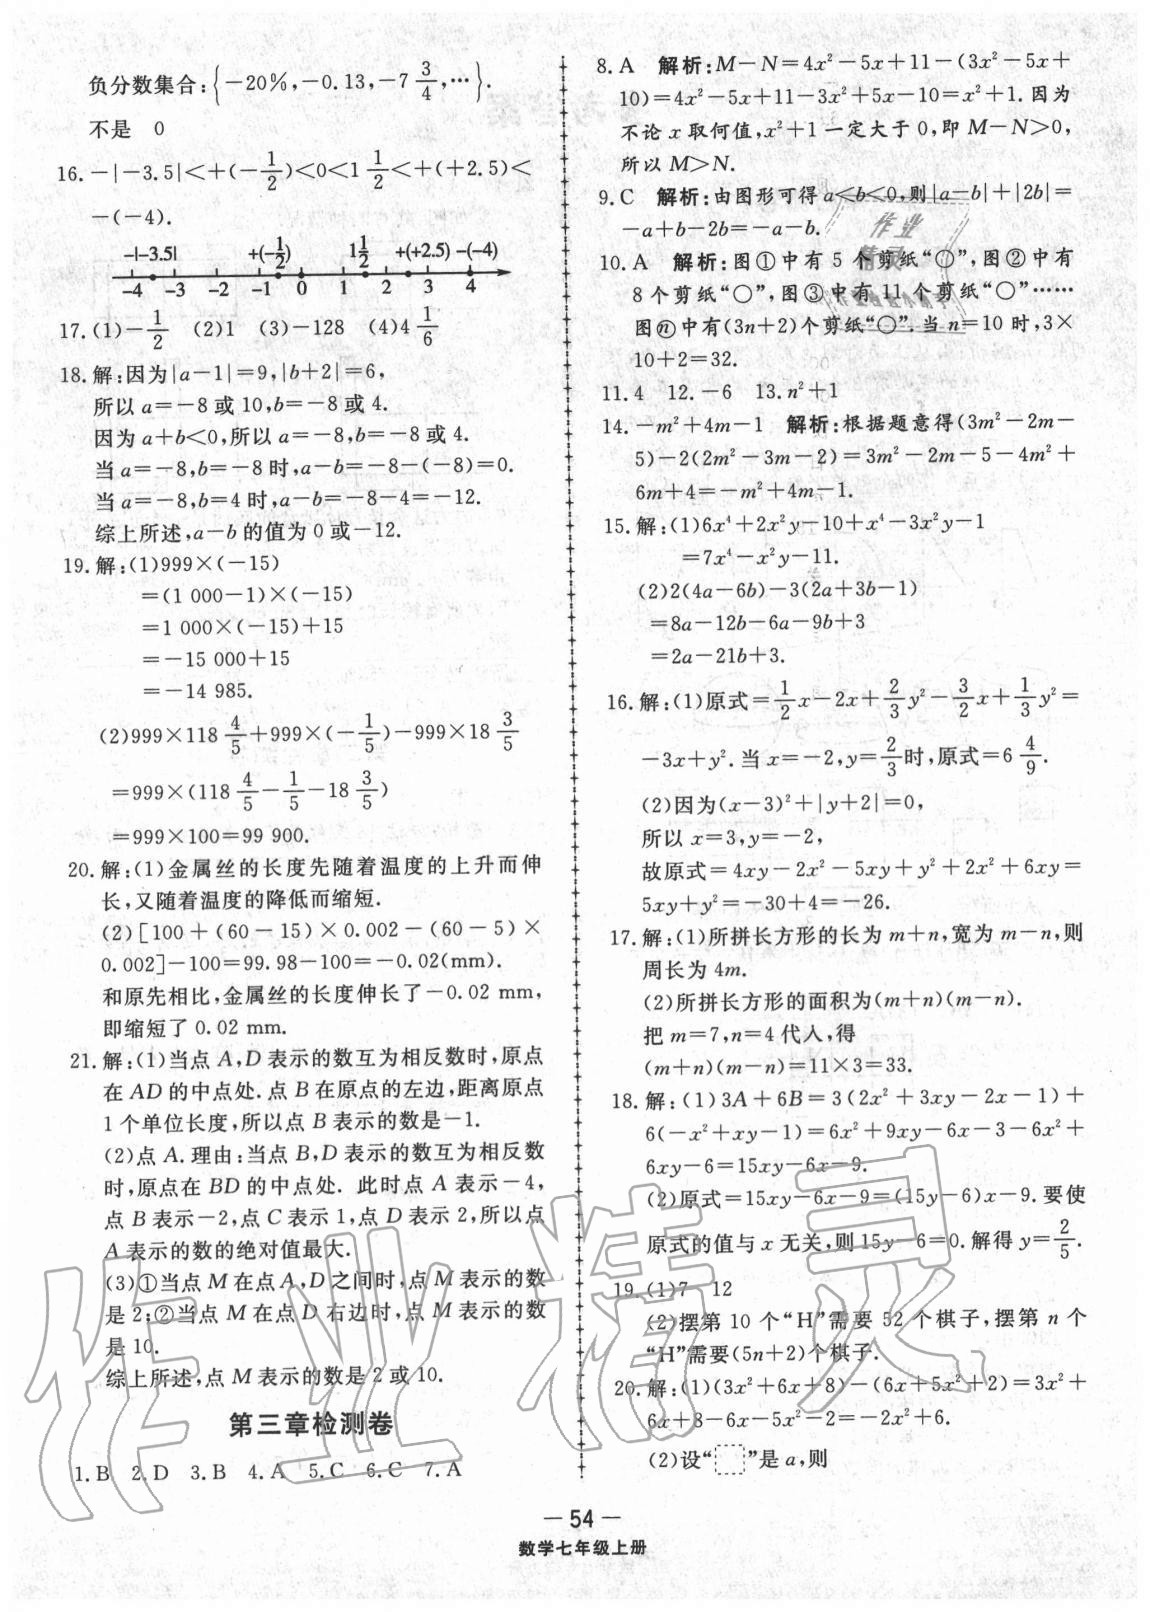 负分数集合:{-20%,-0.13,-7 3/4,…}.
不是　0
16.-|-3.5|<+(-1/2)<0<1 1/2<+(+2.5)<
-(-4).
-|-3.5| +(-1/2) 1 1/2 +(+2.5) -(-4)
-4 -3 -2 -1 0 1 2 3 4
17.(1)-1/2　(2)1　(3)-128　(4)4 1/6
18.解:因为|a-1|=9,|b+2|=6,
所以a=-8或10,b=-8或4.
因为a+b<0,所以a=-8,b=-8或4.
当a=-8,b=-8时,a-b=-8-(-8)=0.
当a=-8,b=4时,a-b=-8-4=-12.
综上所述,a-b的值为0或-12.
19.解:(1)999×(-15)
=(1 000-1)×(-15)
=1 000×(-15)+15
=-15 000+15
=-14 985.
(2)999×118 4/5+999×(-1/5)-999×18 3/5
=999×(118 4/5-1/5-18 3/5)
=999×100=99 900.
20.解:(1)金属丝的长度先随着温度的上升而伸
长,又随着温度的降低而缩短.
(2)[100+(60-15)×0.002-(60-5)×
0.002]-100=99.98-100=-0.02(mm).
和原先相比,金属丝的长度伸长了-0.02 mm,
即缩短了0.02 mm.
21.解:(1)当点A,D表示的数互为相反数时,原点
在AD的中点处.点B在原点的左边,距离原点
1个单位长度,所以点B表示的数是-1.
(2)点A.理由:当点B,D表示的数互为相反数
时,原点在BD的中点处.此时点A表示-4,
点B表示-2,点C表示1,点D表示2,所以点
A表示的数的绝对值最大.
(3)①当点M在点A,D之间时,点M表示的数
是2;②当点M在点D右边时,点M表示的数
是10.
综上所述,点M表示的数是2或10.
第三章检测卷
1.B　2.D　3.B　4.A　5.C　6.C　7.A
8.A　解析:M-N=4x²-5x+11-(3x²-5x+
10)=4x²-5x+11-3x²+5x-10=x²+1.因为
不论x取何值,x²+1一定大于0,即M-N>0,
所以M>N.
9.C　解析:由图形可得a<b<0,则|a-b|+|2b|=
-a+b-2b=-a-b.
10.A　解析:图①中有5个剪纸“○”,图②中有
8个剪纸“○”,图③中有11个剪纸“○”……
图ⓝ中有(3n+2)个剪纸“○”.当n=10时,3×
10+2=32.
11.4　12.-6　13.n²+1
14.-m²+4m-1　解析:根据题意得(3m²-2m-
5)-2(2m²-3m-2)=3m²-2m-5-4m²+
6m+4=-m²+4m-1.
15.解:(1)6x⁴+2x²y-10+x⁴-3x²y-1
=7x⁴-x²y-11.
(2)2(4a-6b)-3(2a+3b-1)
=8a-12b-6a-9b+3
=2a-21b+3.
16.解:(1)原式=1/2x-2x+2/3y²-3/2x+1/3y²=
-3x+y².当x=-2,y=2/3时,原式=6 4/9.
(2)因为(x-3)²+|y+2|=0,
所以x=3,y=-2,
故原式=4xy-2x²-5xy+y²+2x²+6xy=
5xy+y²=-30+4=-26.
17.解:(1)所拼长方形的长为m+n,宽为m-n,则
周长为4m.
(2)所拼长方形的面积为(m+n)(m-n).
把m=7,n=4代入,得
(m+n)(m-n)=11×3=33.
18.解:(1)3A+6B=3(2x²+3xy-2x-1)+
6(-x²+xy-1)=6x²+9xy-6x-3-6x²+
6xy-6=15xy-6x-9.
(2)原式=15xy-6x-9=(15y-6)x-9.要使
原式的值与x无关,则15y-6=0.解得y=2/5.
19.(1)7　12
(2)摆第10个“H”需要52个棋子,摆第n个
“H”需要(5n+2)个棋子.
20.解:(1)(3x²+6x+8)-(6x+5x²+2)=3x²+
6x+8-6x-5x²-2=-2x²+6.
(2)设“□”是a,则
— 54 —
数学七年级上册
作业精灵
作业
精灵